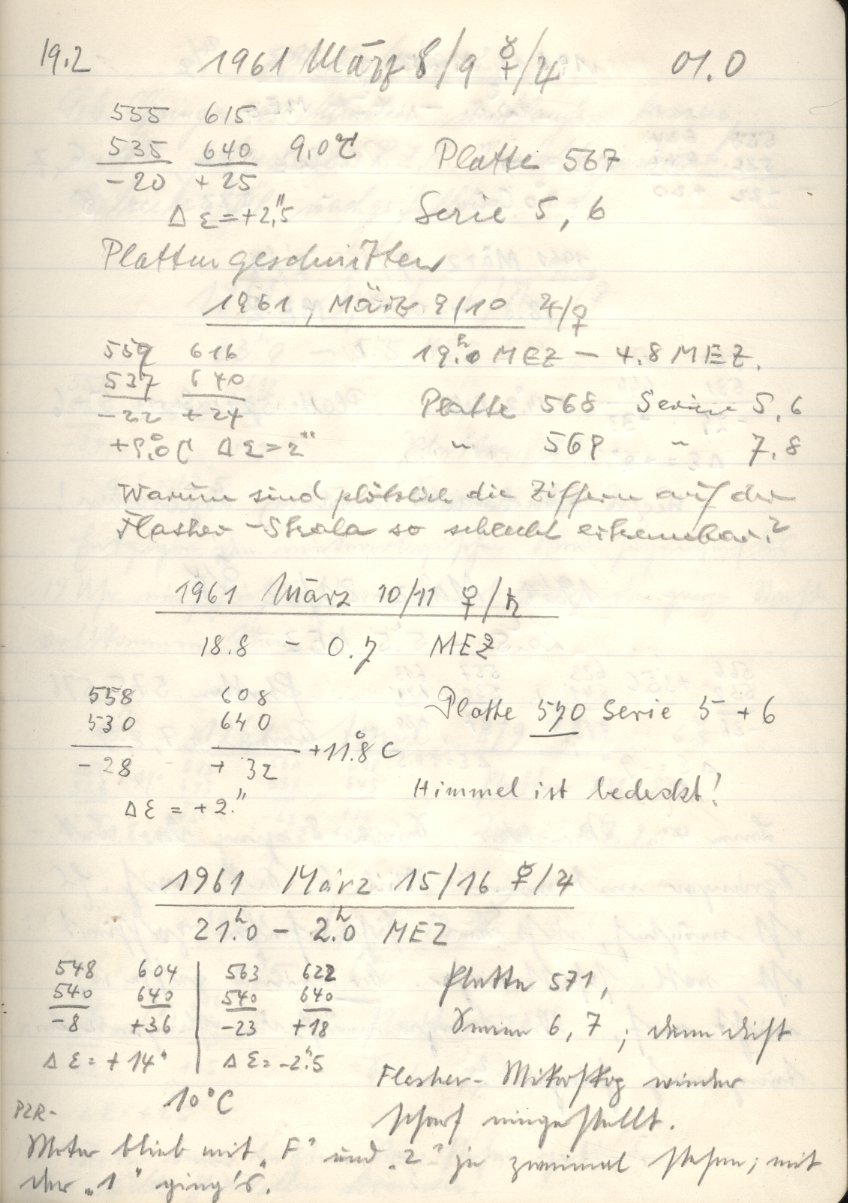 19.2 1961 März 8/9 ☿/♃ 01.0
555 615
535 640 9.0°C Platte 567
-20 +25
Δ ε = +2."5 Serie 5, 6
Platten geschnitten
1961, März 9/10 ♃/♀
559 616 19.ʰ0 MEZ - 4.8 MEZ.
537 640 Platte 568 Serie 5,6
-22 +24
+9.°0 C Δ ε = 2" " 569 " 7,8
Warum sind plötzlich die Ziffern auf der
Flasher-Skala so schlecht erkennbar?
1961 März 10/11 ♀/♄
18.8 - 0.7 MEZ
558 608 Platte 570 Serie 5 + 6
530 640
-28 + 32 +11.°8 C
Himmel ist bedeckt!
Δ ε = +2."
1961 März 15/16 ☿/♃
21.ʰ0 - 2.ʰ0 MEZ
548 604 | 563 622 Platte 571,
540 640 | 540 640
-8 +36 | -23 +18 Serien 6, 7 ; dann
Δ ε = +14" | Δ ε = -2."5
Flasher-Mikroskop wieder
10°C scharf eingestellt.
PZR-
Motor blieb mit „F" und „2" je zweimal stehen; mit
der „1" ging's.